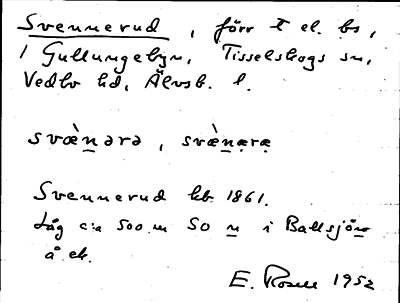 Svennerud, förr t el. bs,
i Gullungebyn, Tisselskogs sn,
Vedbo hd, Älvsb. l.
svæ̀nərə, svæ̀næræ
Svennerud kb. 1861.
Låg c:a 500 m SO n i Ballsjön
å ek.
E. Rosell 1952